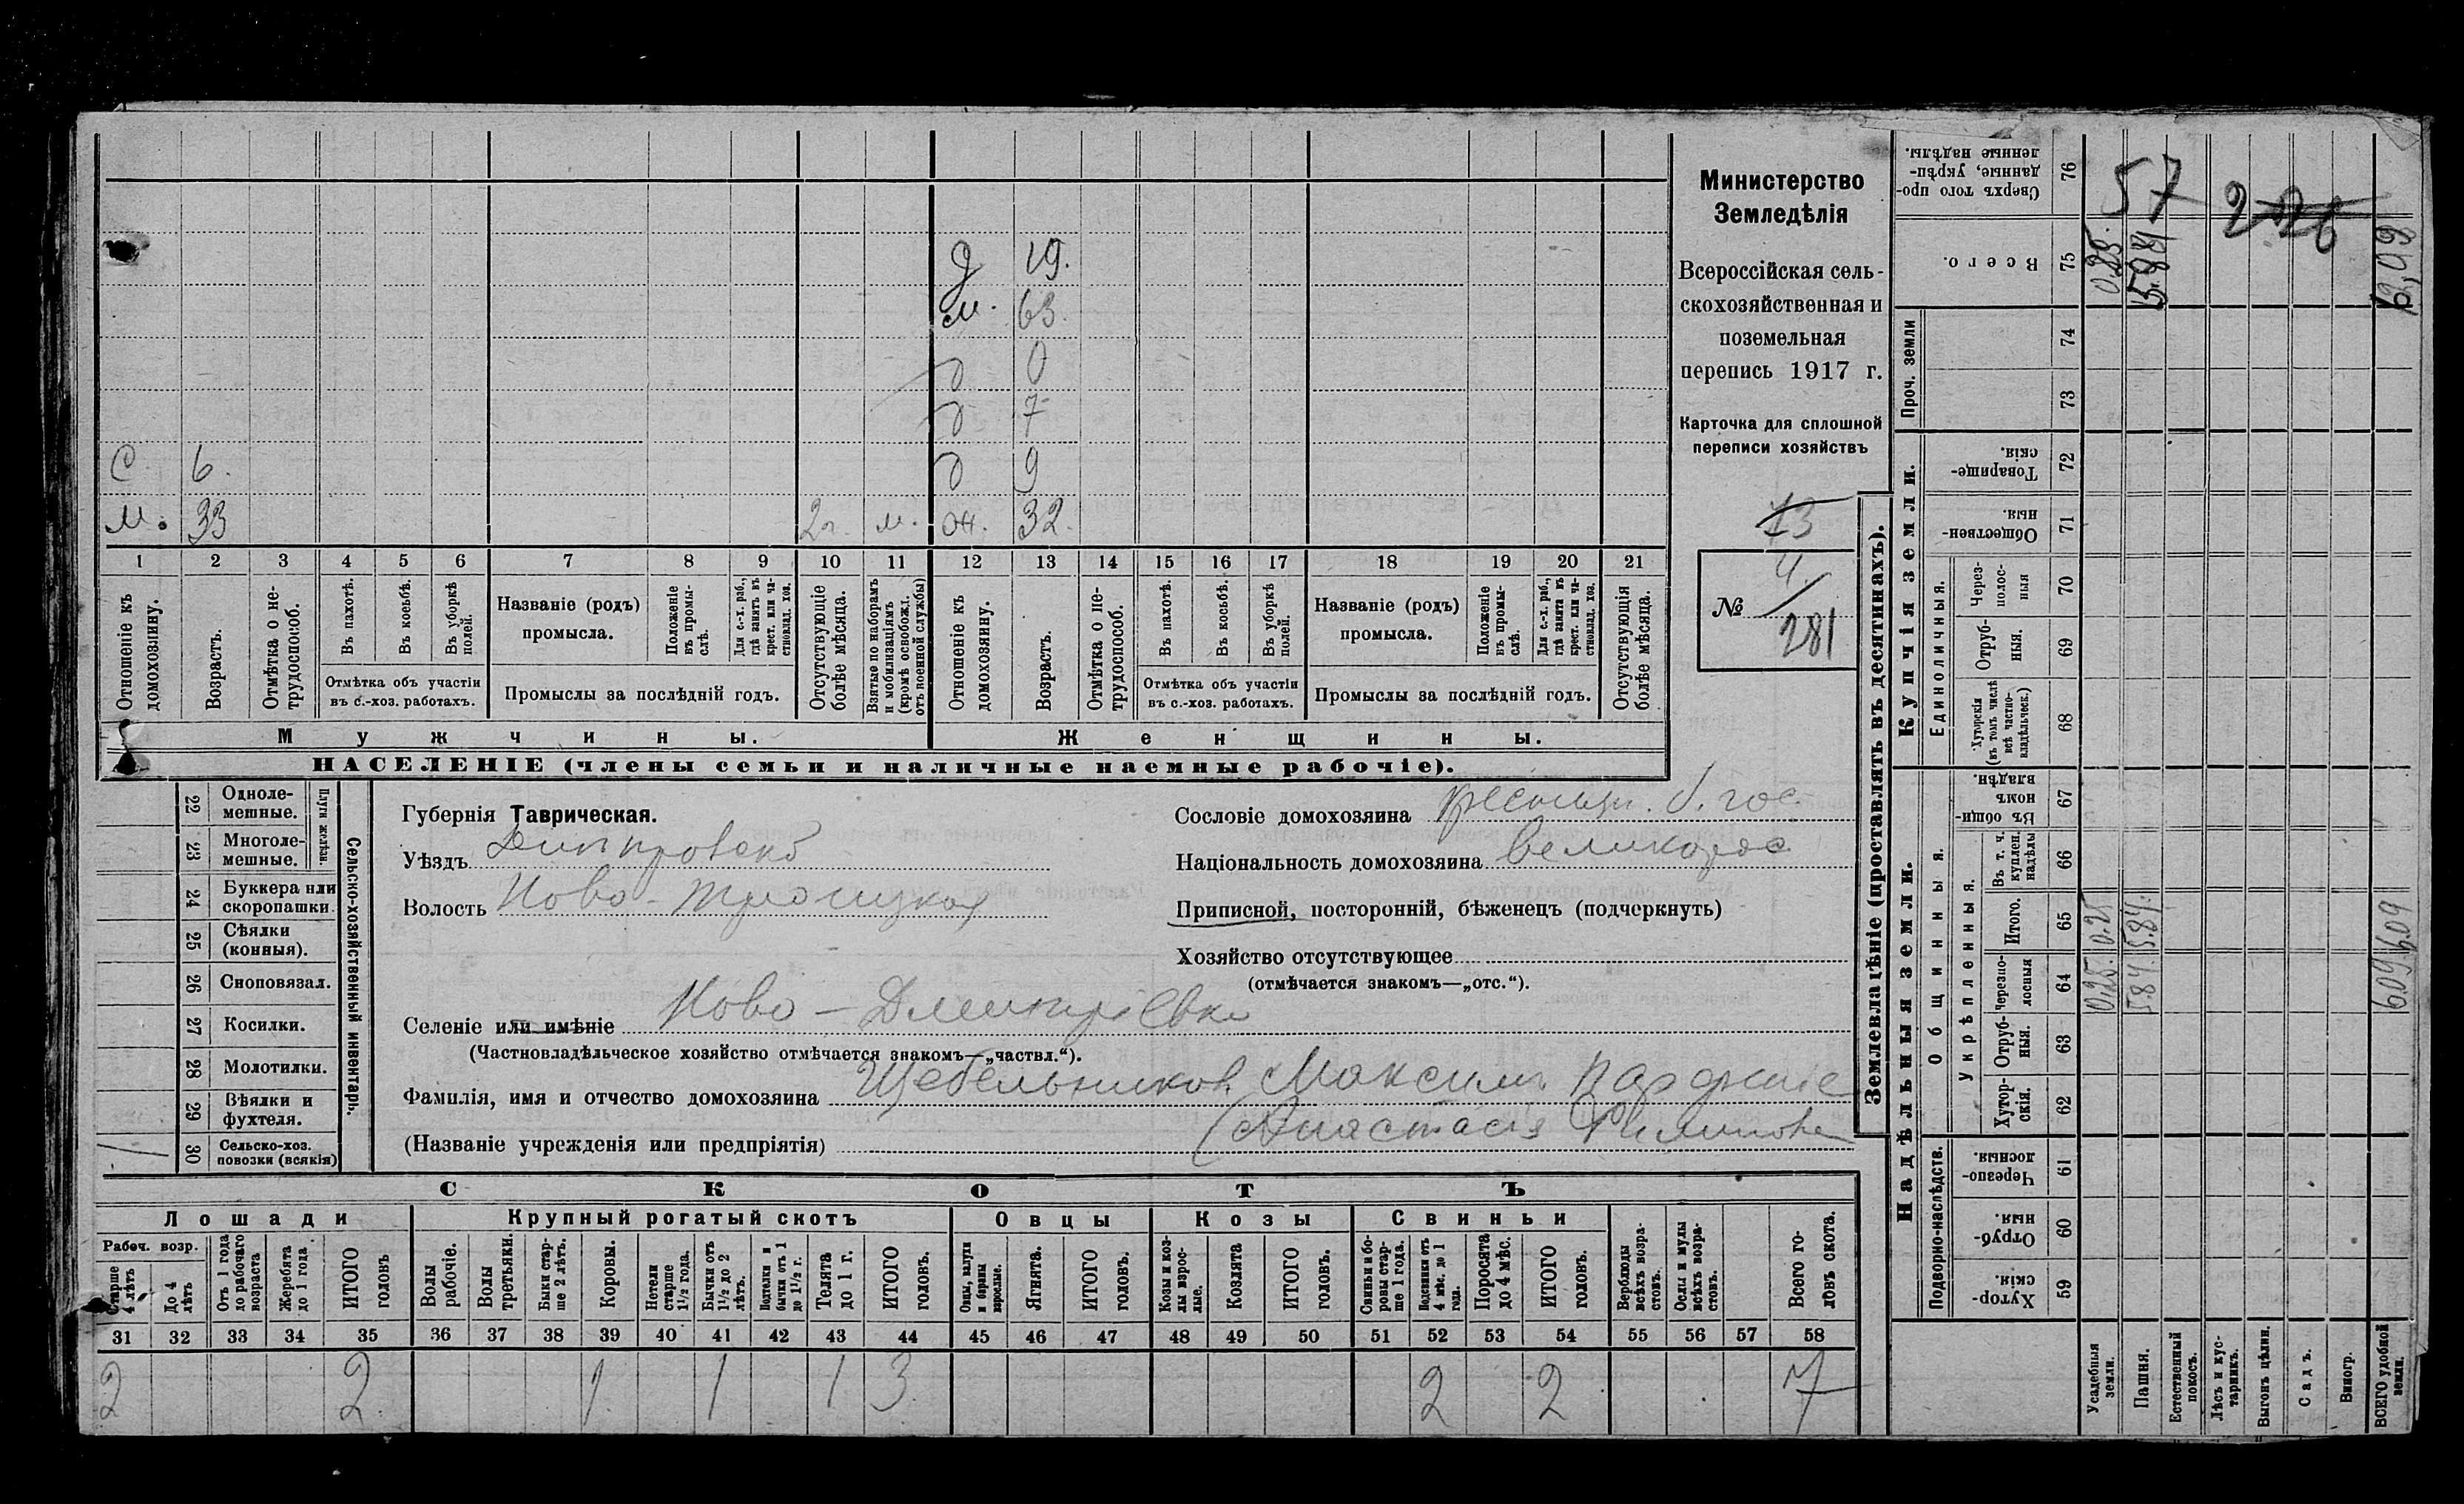 Министерство
Земледѣлія
Всероссійская сель-
скохозяйственная и
поземельная
перепись 1917 г.
Карточка для сплошной
переписи хозяйствъ
13
№ 4/281
Д 19.
м. 63.
д 0
д 7
С. 6. д 9
м. 33 2г. м. 32.
1 2 3 4 5 6 7 8 9 10 11 12 13 14 15 16 17 18 19 20 21
Отношеніе къ домохозяину.
Возрастъ.
Отмѣтка о не-трудоспособ.
Въ пахотѣ.
Въ косьбѣ.
Въ уборкѣ полей.
Отмѣтка объ участіи
въ с.-хоз. работахъ.
Названіе (родъ)
промысла.
Положеніе въ промы-слѣ.
Для с.-х. раб., гдѣ занятъ въ крест. или ча-стновлад. хоз.
Промыслы за послѣдній годъ.
Отсутствующіе болѣе мѣсяца.
Взятые по наборамъ и мобилизаціямъ (кромѣ освобожд. отъ военной службы)
Отношеніе къ домохозяину.
Возрастъ.
Отмѣтка о не-трудоспособ.
Въ пахотѣ.
Въ косьбѣ.
Въ уборкѣ полей.
Отмѣтка объ участіи
въ с.-хоз. работахъ.
Названіе (родъ)
промысла.
Положеніе въ промы-слѣ.
Для с.-х. раб., гдѣ занята въ крест. или ча-стновлад. хоз.
Промыслы за послѣдній годъ.
Отсутствующія болѣе мѣсяца.
Мужчины. Женщины.
НАСЕЛЕНІЕ (члены семьи и наличные наемные рабочіе).
Сельско-хозяйственный инвентарь.
Плуги желѣзн.
22 Одноле-мешные.
23 Многоле-мешные.
24 Буккера или скоропашки.
25 Сѣялки (конныя).
26 Сноповязал.
27 Косилки.
28 Молотилки.
29 Вѣялки и фухтеля.
30 Сельско-хоз. повозки (всякія)
1
Губернія Таврическая.
Уѣздъ Днѣпровскій
Волость Ново-Троицкая
Сословіе домохозяина
Національность домохозяина великорос
Приписной, посторонній, бѣженец (подчеркнуть)
Хозяйство отсутствующее
(отмѣчается знакомъ—„отс.“).
Селеніе или имѣніе Ново-Дмитріевка
(Частновладѣльческое хозяйство отмѣчается знакомъ—„частвл.“).
Фамилія, имя и отчество домохозяина Щебельников Максим
(Названіе учрежденія или предпріятія) (Анастасія
СКОТЪ
Лошади Крупный рогатый скотъ Овцы Козы Свиньи
Рабоч. возр.
Старше 4 лѣтъ
До 4 лѣтъ
Отъ 1 года до рабочаго возраста
Жеребята до 1 года
ИТОГО головъ
Волы рабочіе.
Волы третьяки.
Быки стар-ше 2 лѣтъ.
Коровы.
Нетели старше 1½ года.
Бычки отъ 1½ до 2 лѣтъ.
Подтелки и бычки отъ 1 до 1½ г.
Телята до 1 г.
ИТОГО головъ.
Овцы, валухи и бараны взрослые.
Ягнята.
ИТОГО головъ.
Козы и коз-лы взрос-лые.
Козлята
ИТОГО головъ.
Свиньи и бо-ровы стар-ше 1 года.
Подсвинки отъ 4 мѣс. до 1 года.
Поросята до 4 мѣс.
ИТОГО головъ.
Верблюды всѣхъ возра-стовъ.
Ослы и мулы всѣхъ возра-стовъ.
Всего го-ловъ скота.
31 32 33 34 35 36 37 38 39 40 41 42 43 44 45 46 47 48 49 50 51 52 53 54 55 56 57 58
2 2 1 1 1 3 2 2 7
Землевладѣніе (проставлять въ десятинахъ).
Надѣльныя земли.
Купчія земли.
Проч. земли
Подворно-наслѣдств.
Общинныя.
Укрѣпленныя.
Единоличныя.
59 Хутор-скія.
60 Отруб-ныя.
61 Черезпо-лосныя.
62 Хутор-скія.
63 Отруб-ныя.
64 Черезпо-лосныя
65 Итого.
66 Въ т. ч. куплен. надѣлы
67 Въ общин-номъ владѣн.
68 Хуторскія (въ томъ числѣ всѣ частно-владѣльческ.)
69 Отруб-ныя.
70 Через-полос-ныя
71 Обществен-ныя.
72 Товарище-скія.
73
74
75 Всего.
76 Сверхъ того про-данные, укрѣп-ленные надѣлы.
Усадебныя земли. 0.25. 0.25 0.25.
Пашня. 5.84. 5.84. 5.84
Естественный покосъ.
Лѣсъ и кус-тарникъ.
Выгонъ цѣлин.
Садъ.
Виногр.
ВСЕГО удобной земли. 6.09 6.09
57
2